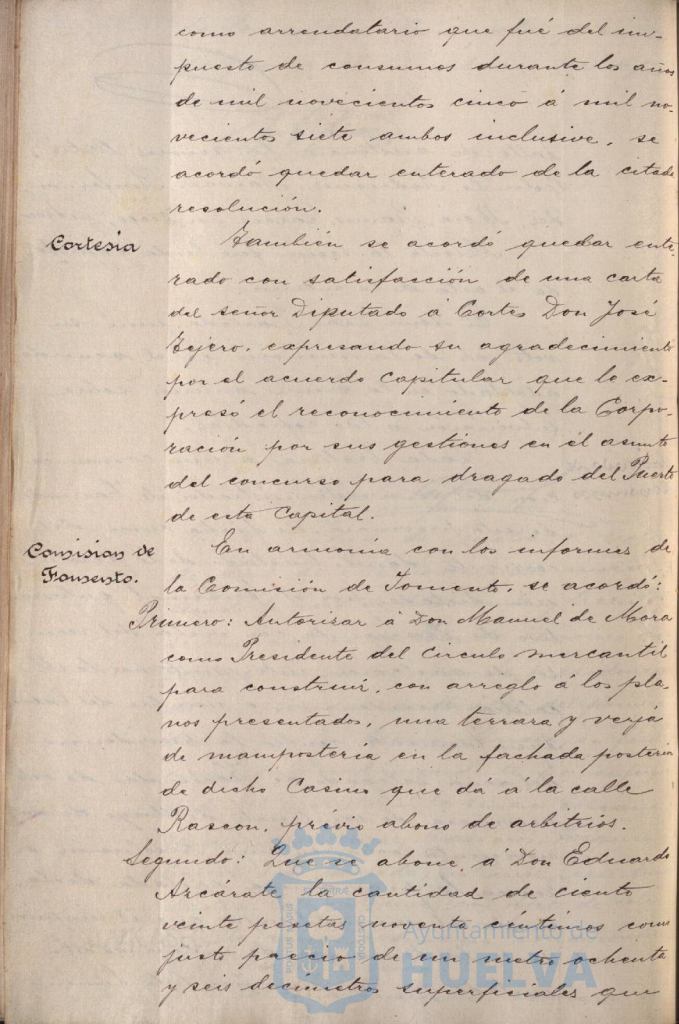 como arrendatario que fué del im-
puesto de consumos durante los años
de mil novecientos cinco á mil no-
vecientos siete ambos inclusive, se
acordó quedar enterado de la citada
resolución.
Cortesía
También se acordó quedar ente-
rado con satisfacción de una carta
del señor Diputado á Cortes Don José
Tejero, expresando su agradecimiento
por el acuerdo Capitular que le ex-
presó el reconocimiento de la Corpo-
ración por sus gestiones en el asunto
del concurso para dragado del Puerto
de esta Capital.
Comision de
Fomento.
En armonía con los informes de
la Comisión de Fomento, se acordó:
Primero: Autorizar á Don Manuel de Mora
como Presidente del Circulo mercantil
para construir, con arreglo á los pla-
nos presentados, una terrara y verja
de mampostería en la fachada posterior
de dicho Casino que dá á la calle
Rascon, prévio abono de arbitrios.
Segundo: Que se abone á Don Eduardo
Azcárate la cantidad de ciento
veinte pesetas noventa céntimos como
justo precio de un metro ochenta
y seis decímetros superficiales que
Ayuntamiento de
HUELVA